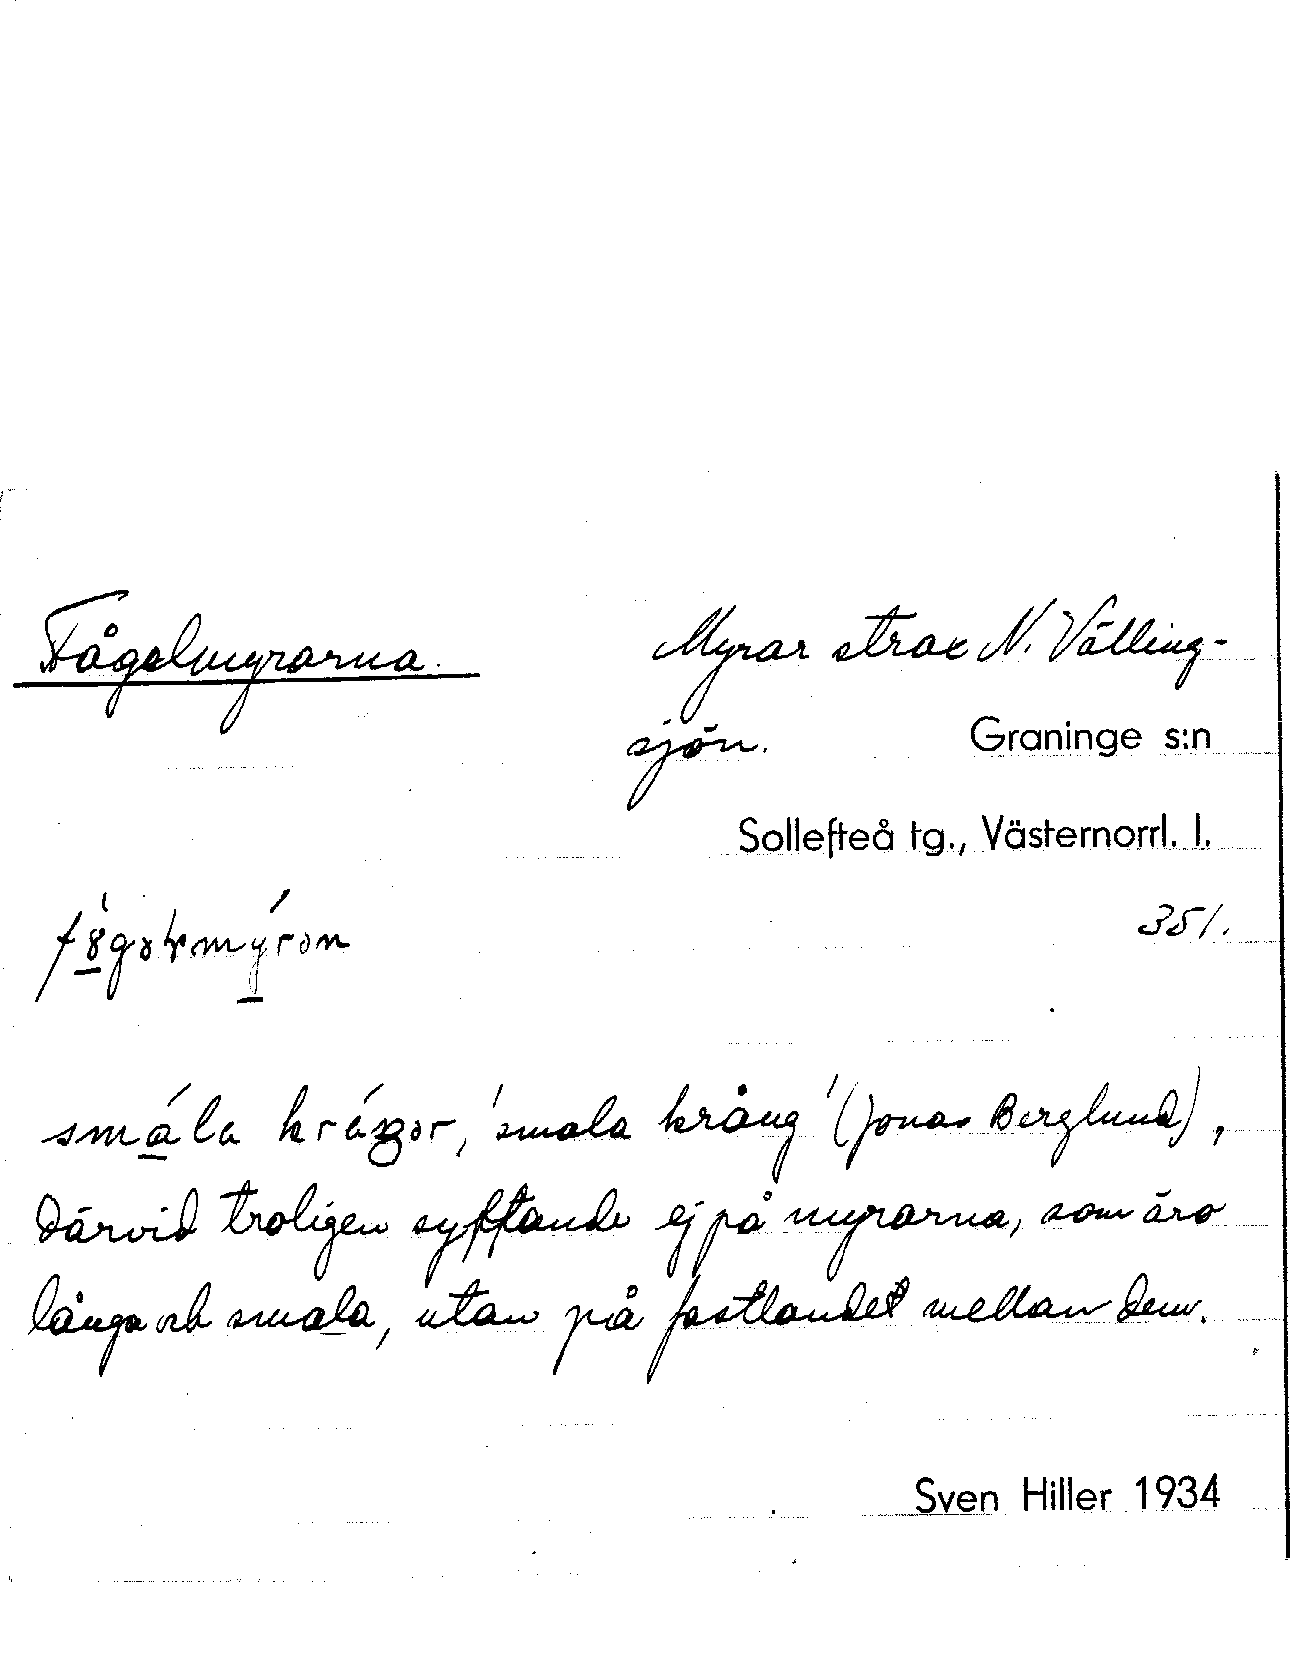 Fågelmyrarna.
Myrar strax N. Välling-
sjön.
Graninge s:n
Sollefteå tg., Västernorrl. l.
351.
smála 'smala krång' (Jonas Berglund),
därvid troligen syftande ej på myrarna, som äro
långa och smala, utan på fastlandet mellan dem.
Sven Hiller 1934